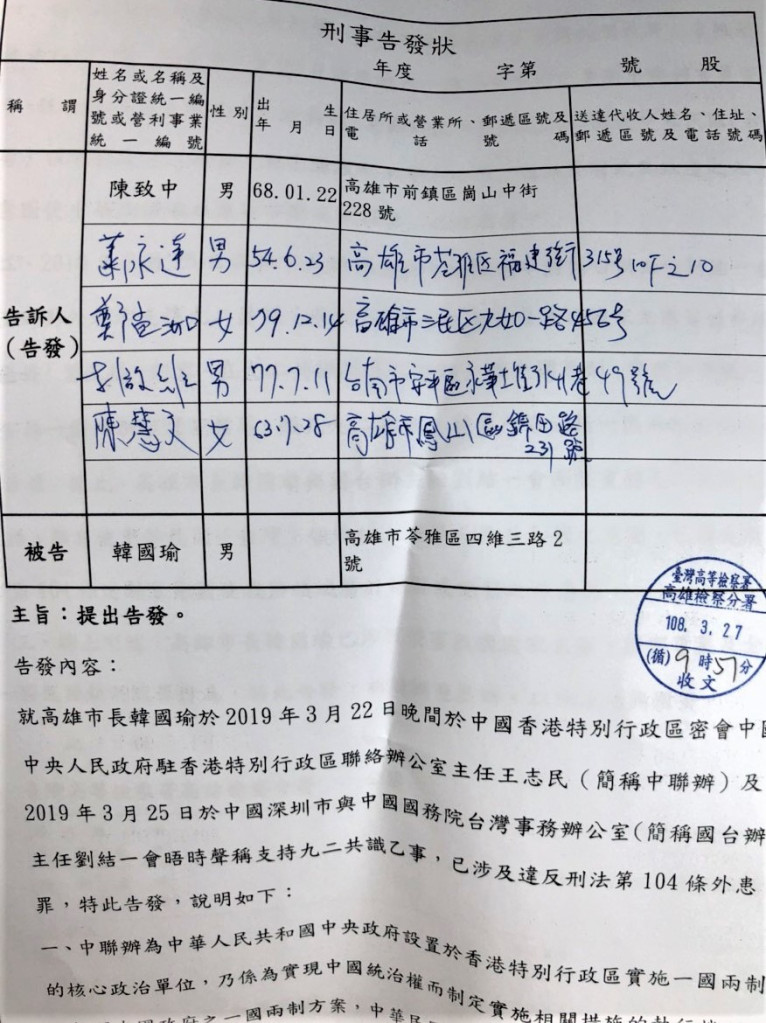 刑事告發狀
年度 字第 號 股
稱謂
姓名或名稱及
身分證統一編
號或營利事業
統一編號
性別
出生
年月日
住居所或營業所、郵遞區號及
電話號碼
送達代收人姓名、住址、
郵遞區號及電話號碼
陳致中 男 68.01.22 高雄市前鎮區崗山中街
228 號
告訴人
(告發)
永達 男 54.6.23 高雄市苓雅區福建街315號10F之10
鄭孟洳 女 79.12.14 高雄市三民区九如一路456号
男 77.7.11 台南市安平區永華 49號
陳慧文 女 63.7.28 高雄市鳳山區錦田路
231號
被告 韓國瑜 男 高雄市苓雅區四維三路2
號
臺灣高等檢察署
高雄檢察分署
108. 3. 27
(備)9時57分
收文
主旨：提出告發。
告發內容：
就高雄市長韓國瑜於 2019 年 3 月 22 日晚間於中國香港特別行政區密會中國
中央人民政府駐香港特別行政區聯絡辦公室主任王志民（簡稱中聯辦）及
2019 年 3 月 25 日於中國深圳市與中國國務院台灣事務辦公室(簡稱國台辦
主任劉結一會晤時聲稱支持九二共識乙事，已涉及違反刑法第 104 條外患
罪，特此告發，說明如下：
一、中聯辦為中華人民共和國中央政府設置於香港特別行政區實施一國兩制
的核心政治單位，乃係為實現中國統治權而制定實施相關措施的執行
國政府之一國兩制方案，中華民